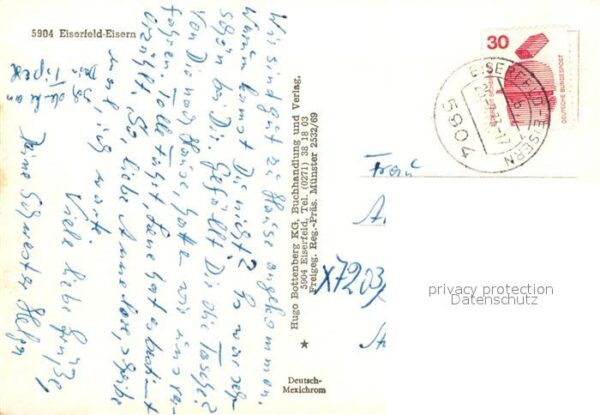 5904 Eiserfeld-Eisern
Wir sind gut zu Hause angekommen.
Wann kommst Du nicht? Es war sehr
schön bei Dir. Gefällt Dir die Tasche?
von Dir nach Hause, Gott
fahren. Tolle Fahrt, hat es bestimmt
erzählt. So, liebe Annelore, schreibe
mal, ich warte.
Viele liebe Grüße,
Deine Schwester Helga
Ich danke an
Hugo Bottenberg KG, Buchhandlung und Verlag,
5904 Eiserfeld, Tel. (0271) 38 18 03
Freigeg. Reg.-Präs. Münster 2532/69
Deutsch-
Mexichrom
30
DEUTSCHE BUNDESPOST
EISERFELD-EISERN
5904
Frau
privacy protection
Datenschutz